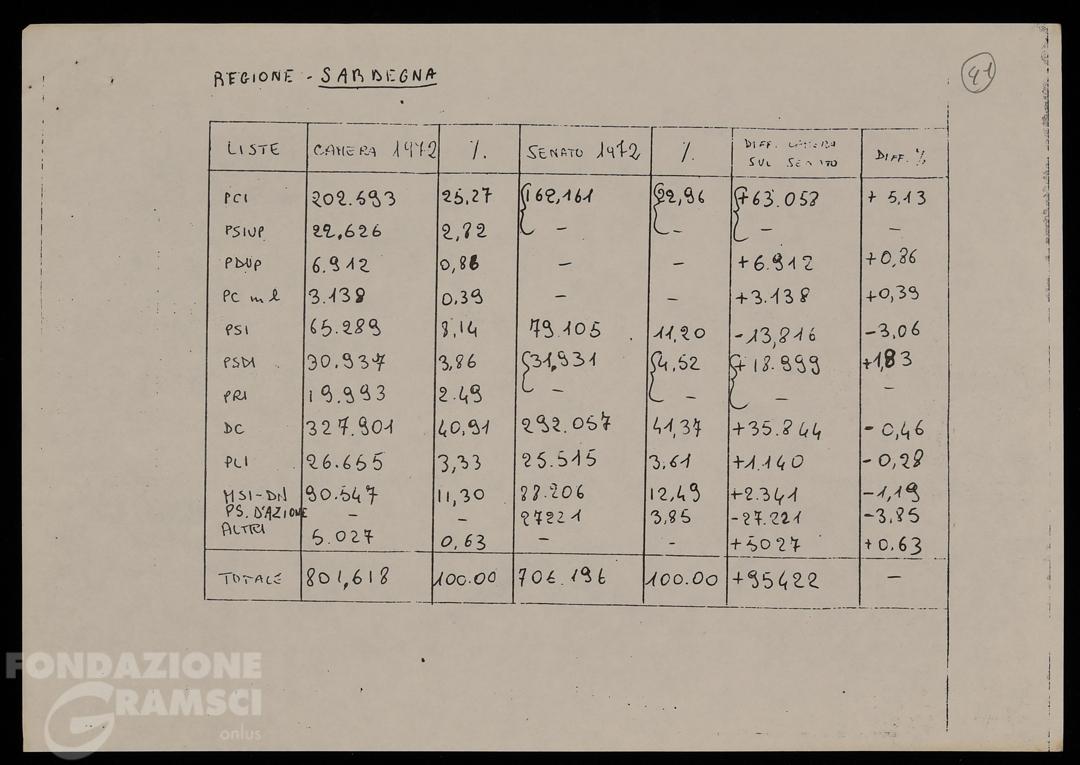 REGIONE - SARDEGNA
41
LISTE CAMERA 1972 % SENATO 1972 % DIFF. CAMERA SUL SENATO DIFF. %
PCI 202.593 25,27 {162,161 {22,96 {+63.058 + 5,13
PSIUP 22,626 2,82 – – – –
PDUP 6.912 0,86 – – +6.912 +0,86
PC m l 3.138 0,39 – – +3.138 +0,39
PSI 65.289 8,14 79.105 11,20 -13,816 -3,06
PSDI 30.937 3,86 {31,931 {4,52 {+18.999 +1,83
PRI 19.993 2.49 – – – –
DC 327.901 40,91 292.057 41,37 +35.844 -0,46
PLI 26.655 3,33 25.515 3,61 +1.140 -0,28
MSI-DN 90.547 11,30 88.206 12,49 +2.341 -1,19
PS. D'AZIONE – – 27221 3,85 -27.221 -3,85
ALTRI 5.027 0,63 – – +5027 +0.63
TOTALE 801,618 100.00 706.196 100.00 +95422 –
FONDAZIONE
GRAMSCI
onlus